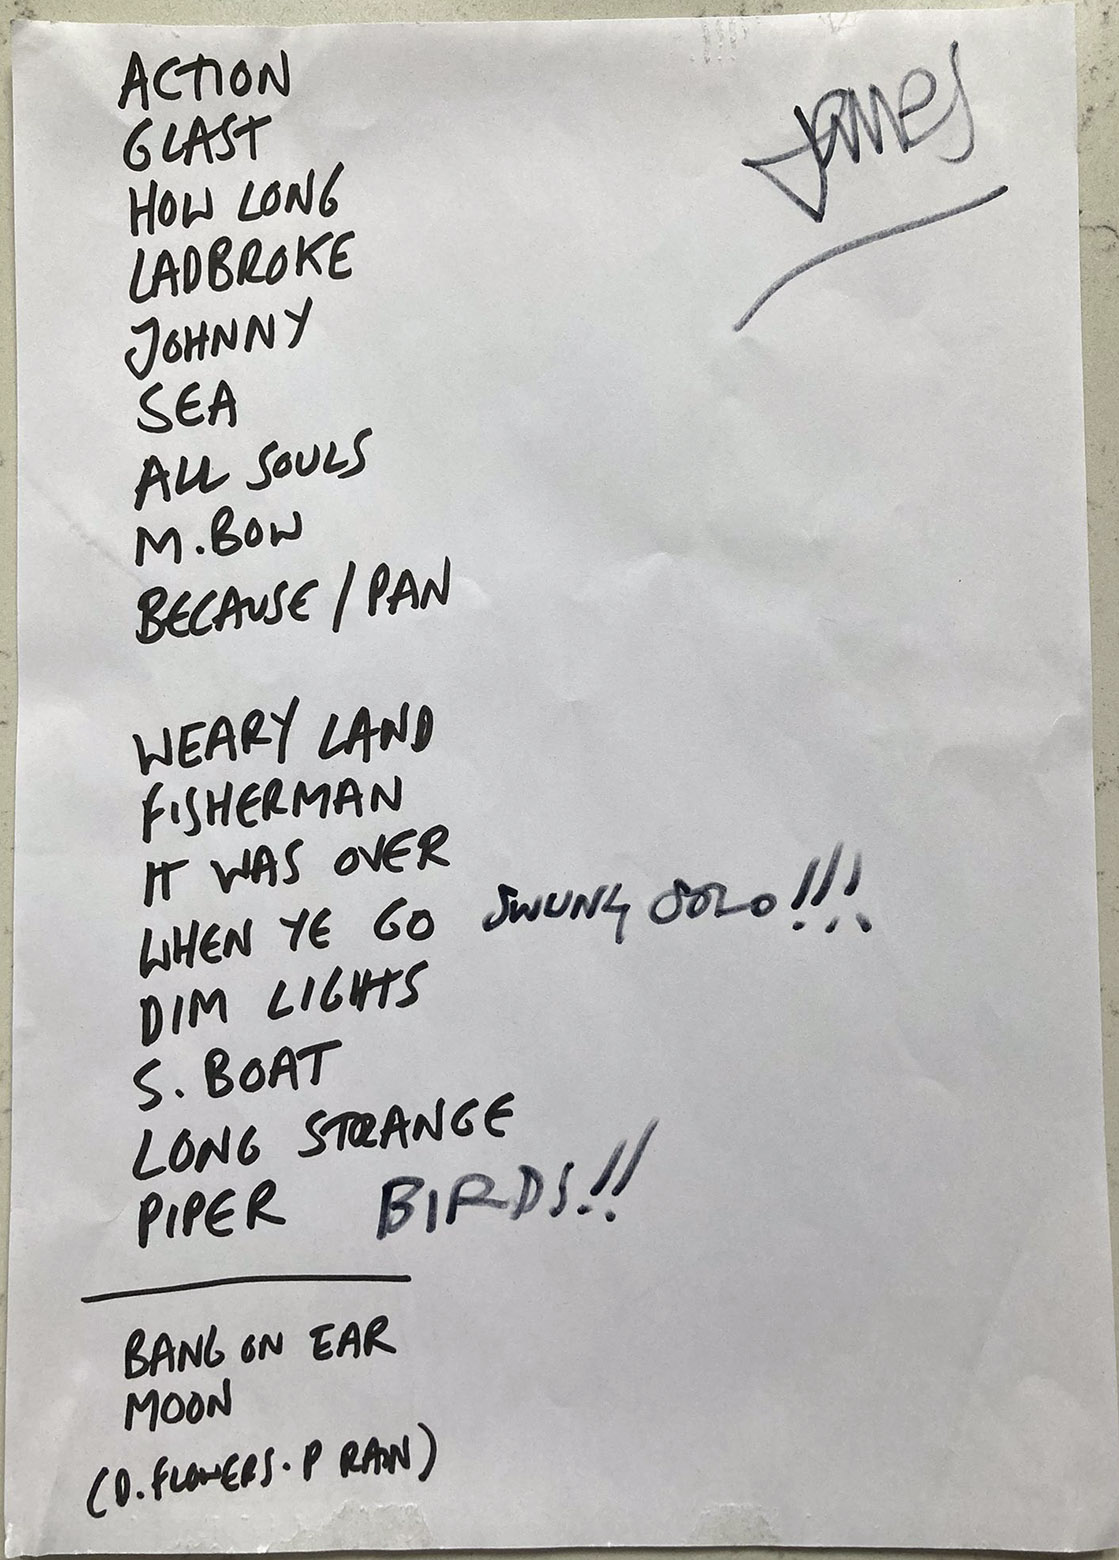 James
ACTION
GLAST
HOW LONG
LADBROKE
JOHNNY
SEA
ALL SOULS
M.BOW
BECAUSE / PAN
WEARY LAND
FISHERMAN
IT WAS OVER
WHEN YE GO SWUNG SOLO!!!
DIM LIGHTS
S. BOAT
LONG STRANGE
PIPER BIRDS!!
BANG ON EAR
MOON
(D.FLOWERS. P RAIN)